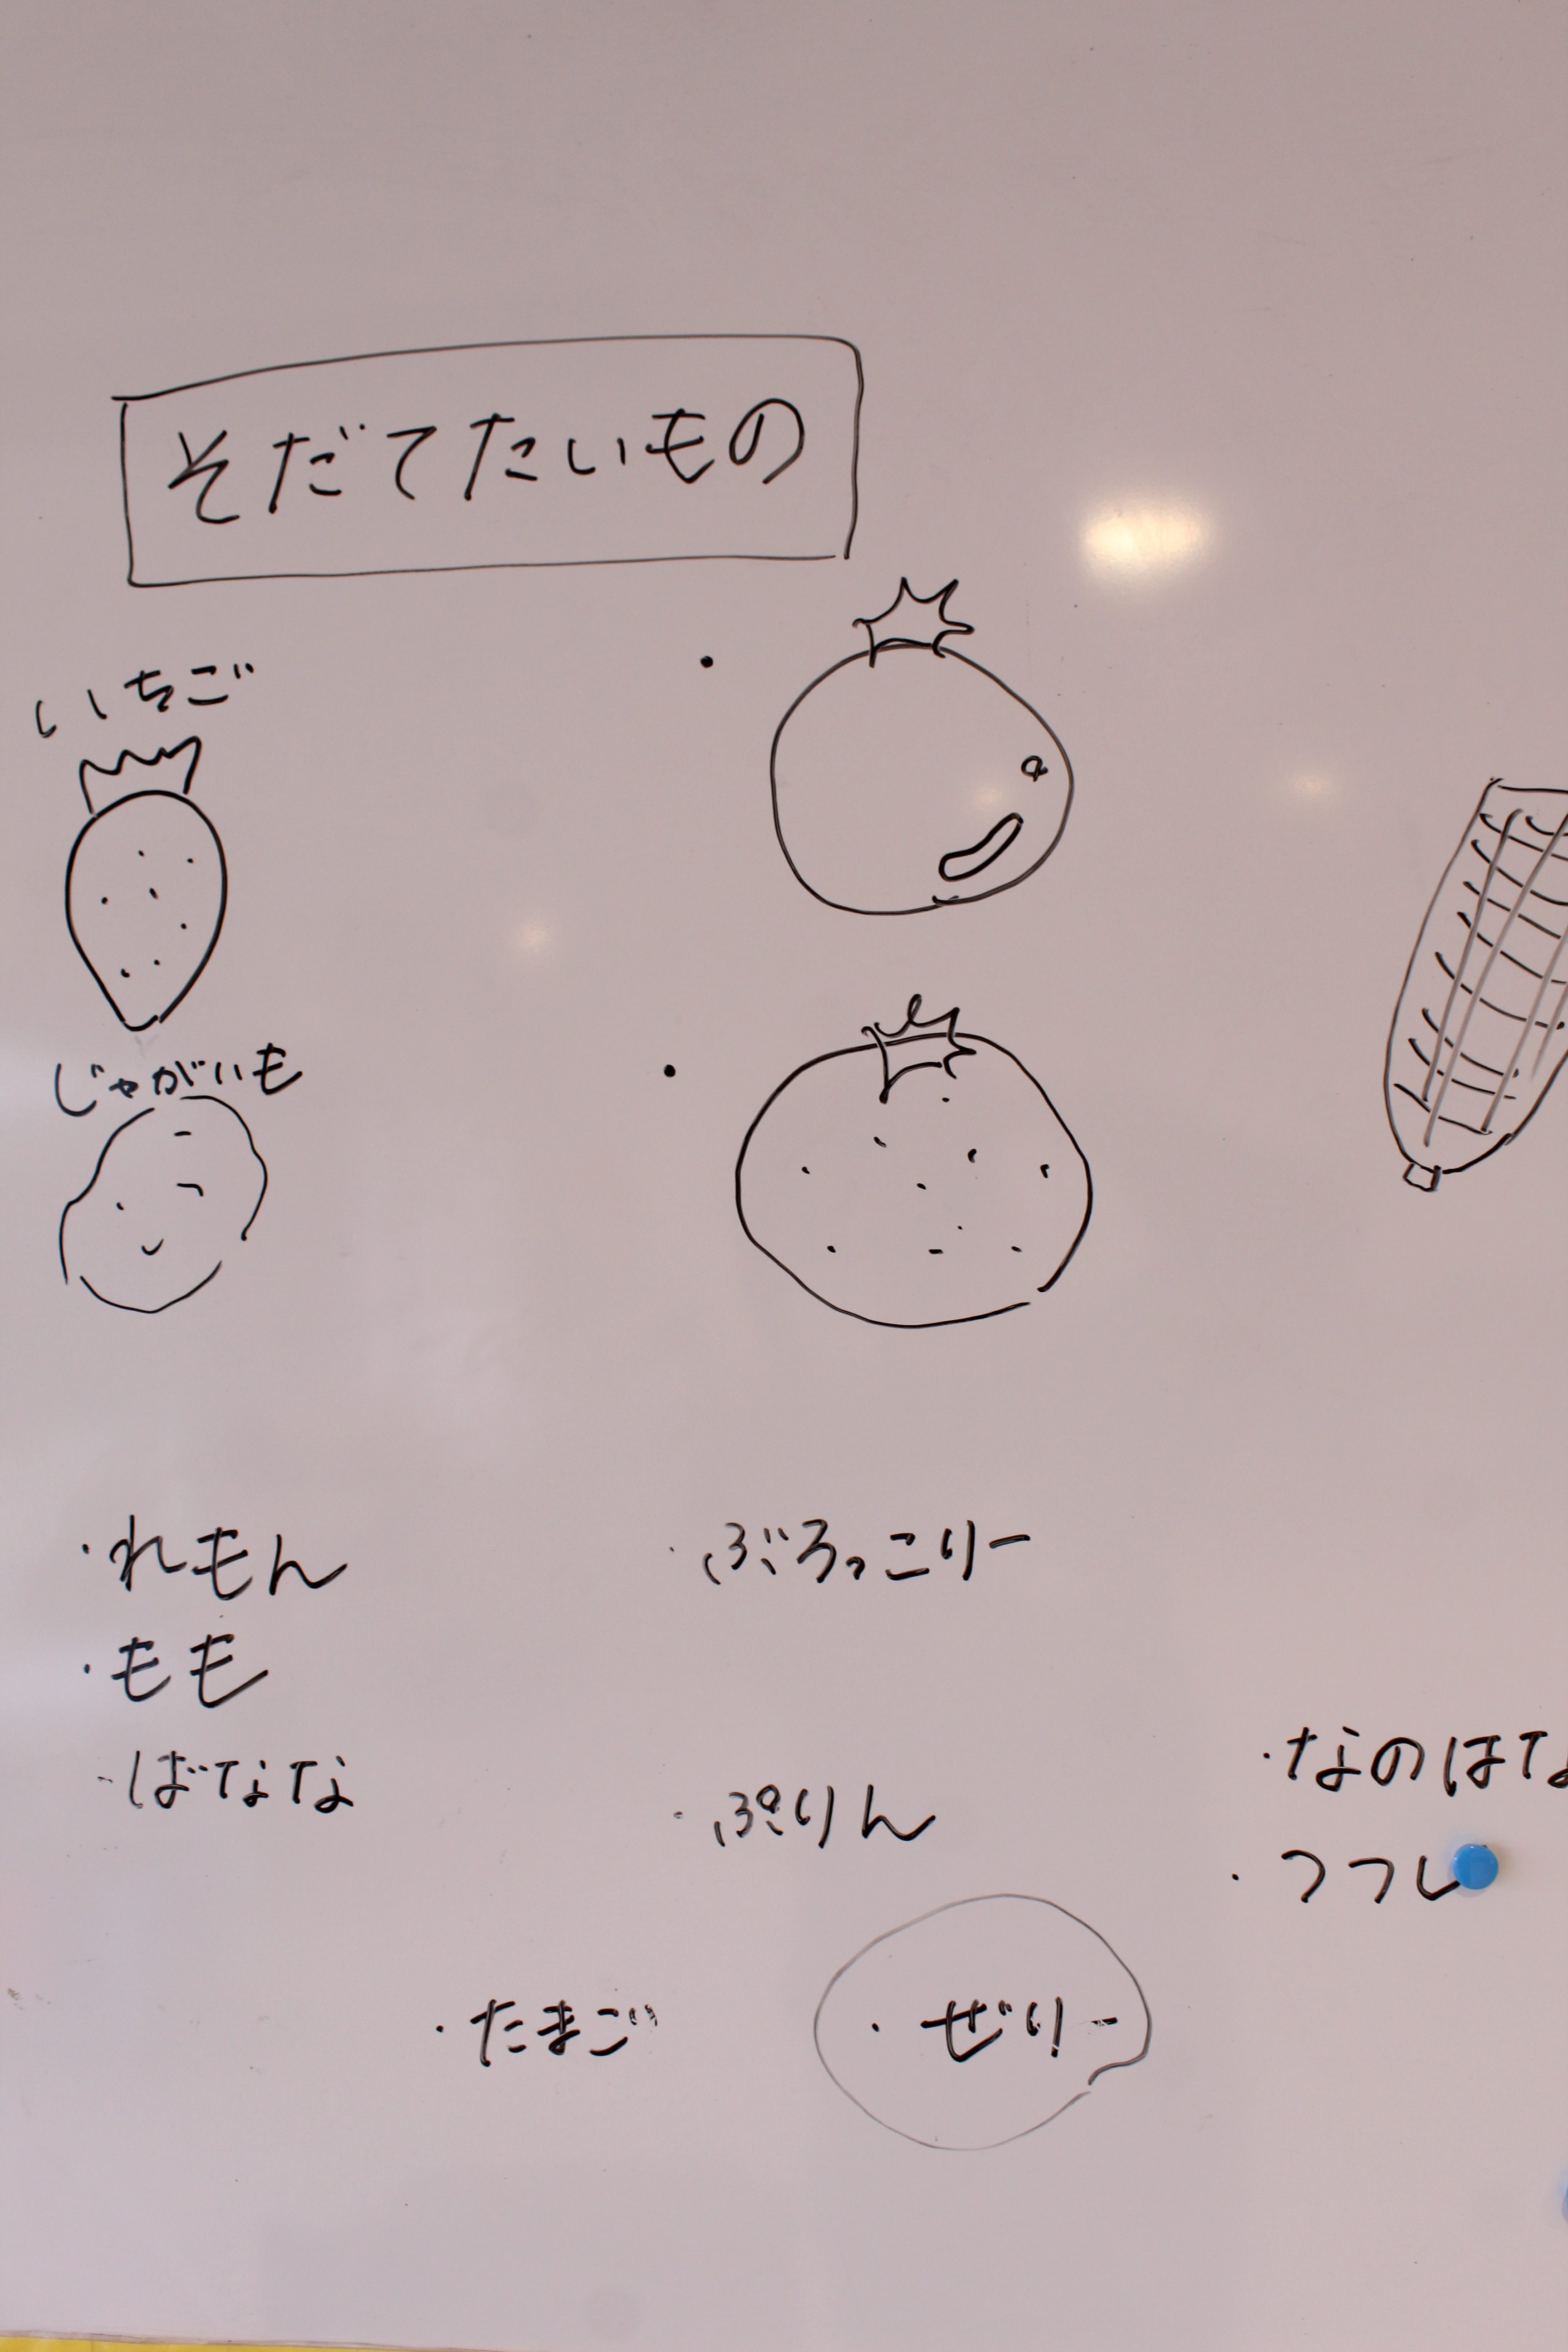 そだてたいもの
いちご
じゃがいも
・れもん
・ぶろっこりー
・もも
・ばなな
・ぷりん
・なのはな
・たまご
・ぜりー